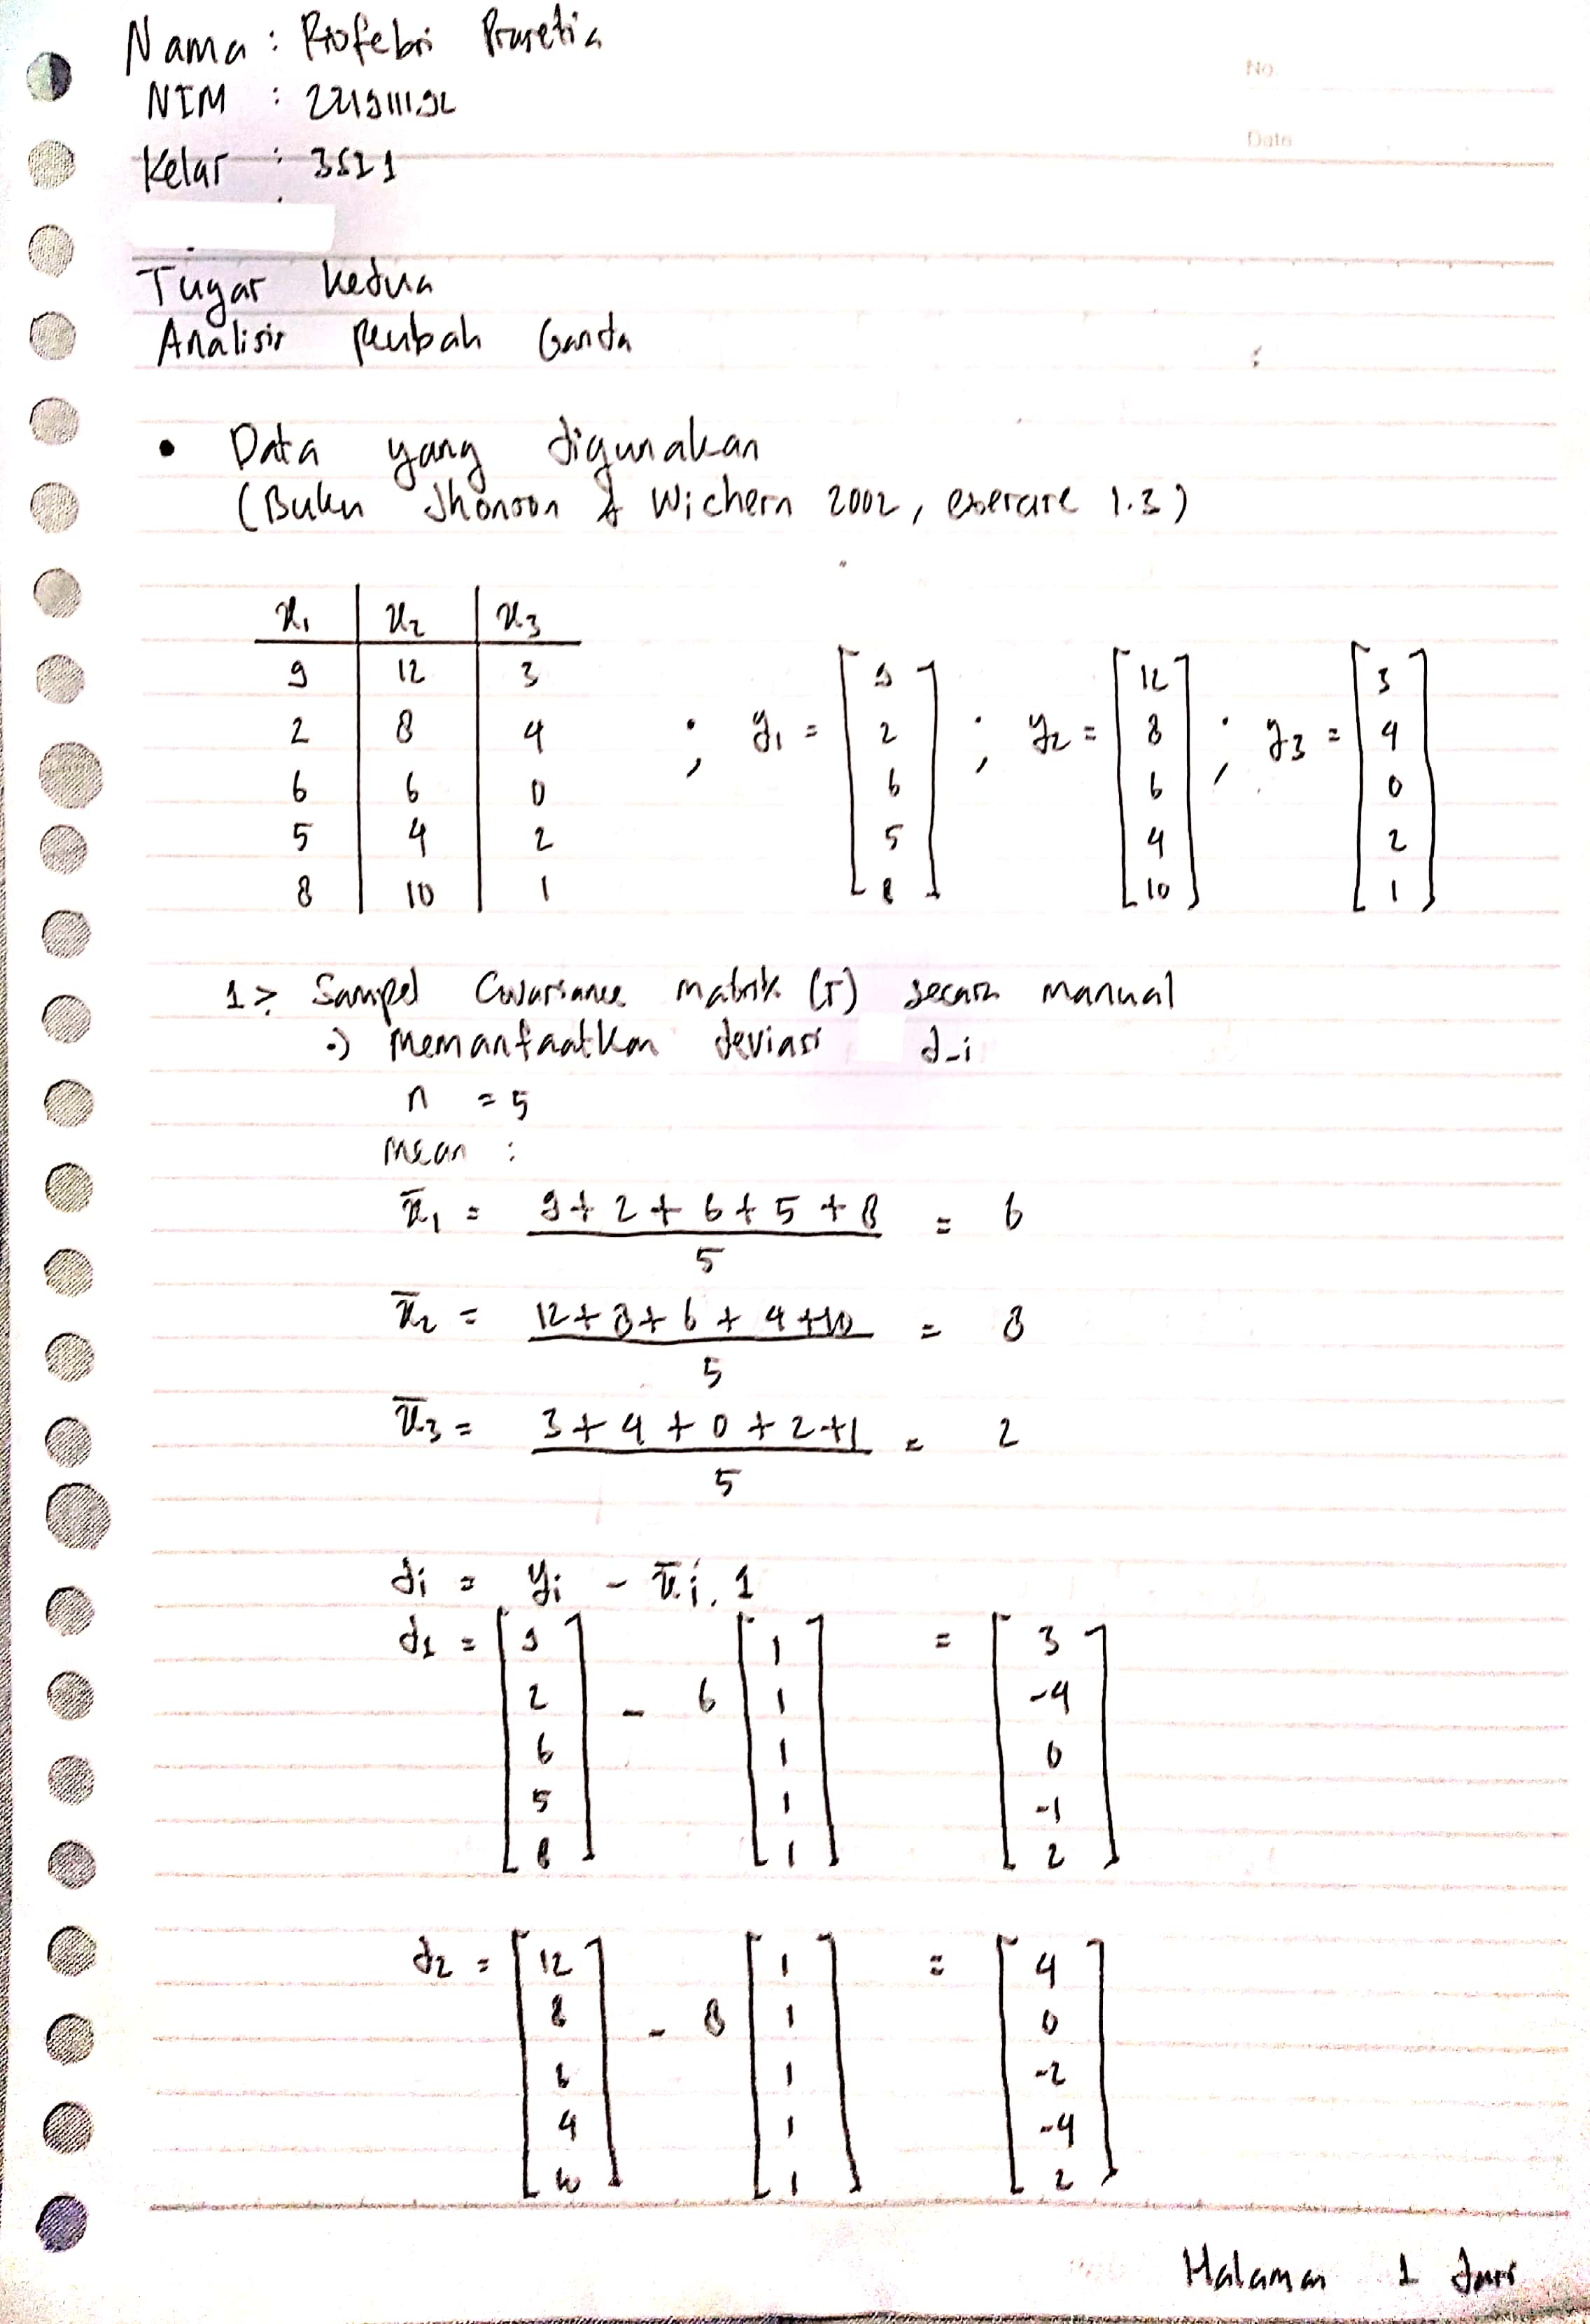 No.
Date
Nama : Profebri Prasetia
NIM : 221911192
Kelas : 3SI1
Tugas kedua
Analisis Peubah Ganda
• Data yang digunakan
(Buku Jhonson & Wichern 2002, exercise 1.3)
x₁ | x₂ | x₃
9 | 12 | 3
2 | 8 | 4
6 | 6 | 0
5 | 4 | 2
8 | 10 | 1
; y₁ = [9 2 6 5 8] ; y₂ = [12 8 6 4 10] ; y₃ = [3 4 0 2 1]
1> Sampel Covariance matrik secara manual
•) Memanfaatkan deviasi d_i
n = 5
mean :
x̄₁ = 9+2+6+5+8 / 5 = 6
x̄₂ = 12+8+6+4+10 / 5 = 8
x̄₃ = 3+4+0+2+1 / 5 = 2
di = yi - x̄i.1
d₁ = [9 2 6 5 8] - 6 [1 1 1 1 1] = [3 -4 0 -1 2]
d₂ = [12 8 6 4 10] - 8 [1 1 1 1 1] = [4 0 -2 -4 2]
Halaman 1 dari